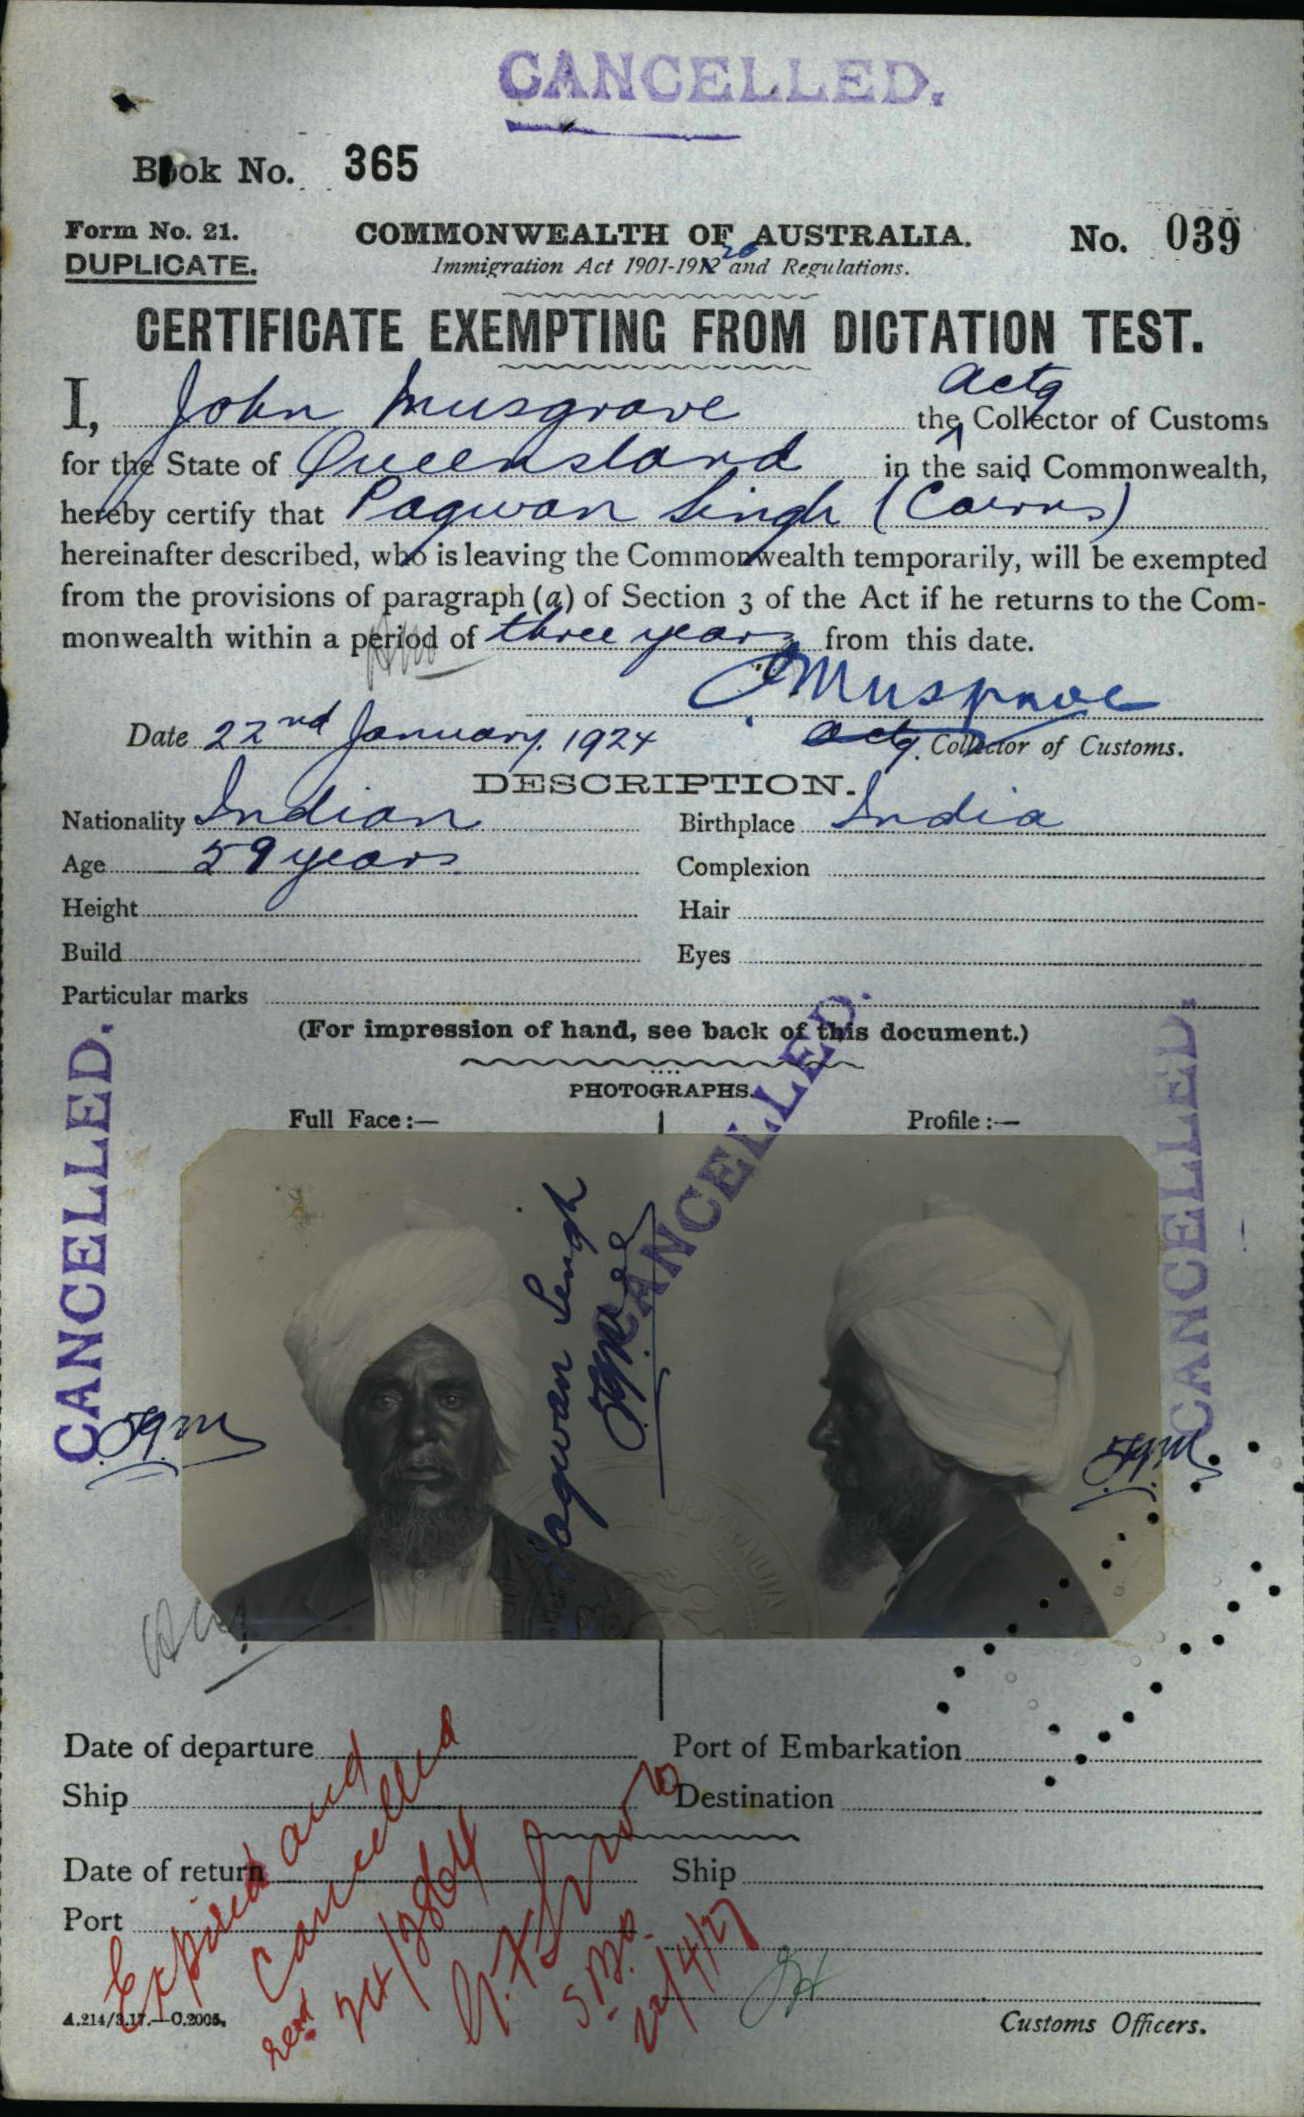 CANCELLED.
Book No. 365
Form No. 21.
DUPLICATE.
COMMONWEALTH OF AUSTRALIA.
No. 039
20
Immigration Act 1901-1912 and Regulations.
CERTIFICATE EXEMPTING FROM DICTATION TEST.
actg
I, John Musgrave the Collector of Customs
for the State of Queensland in the said Commonwealth,
hereby certify that Pagwan Singh (Cairns)
hereinafter described, who is leaving the Commonwealth temporarily, will be exempted
from the provisions of paragraph (a) of Section 3 of the Act if he returns to the Com-
monwealth within a period of three years from this date.
J Musgrave
Date 22nd January. 1924 actg. Collector of Customs.
DESCRIPTION.
Nationality Indian Birthplace India
Age 59 years Complexion
Height Hair
Build Eyes
Particular marks
(For impression of hand, see back of this document.)
PHOTOGRAPHS.
Full Face :— Profile :—
CANCELLED.
CANCELLED.
CANCELLED.
Pagwan Singh
Date of departure Port of Embarkation
Ship Destination
Date of return Ship
Port
Expired and
Cancelled
S.B.O.
22/4/27
A.214/3.17.—C.2005. Customs Officers.